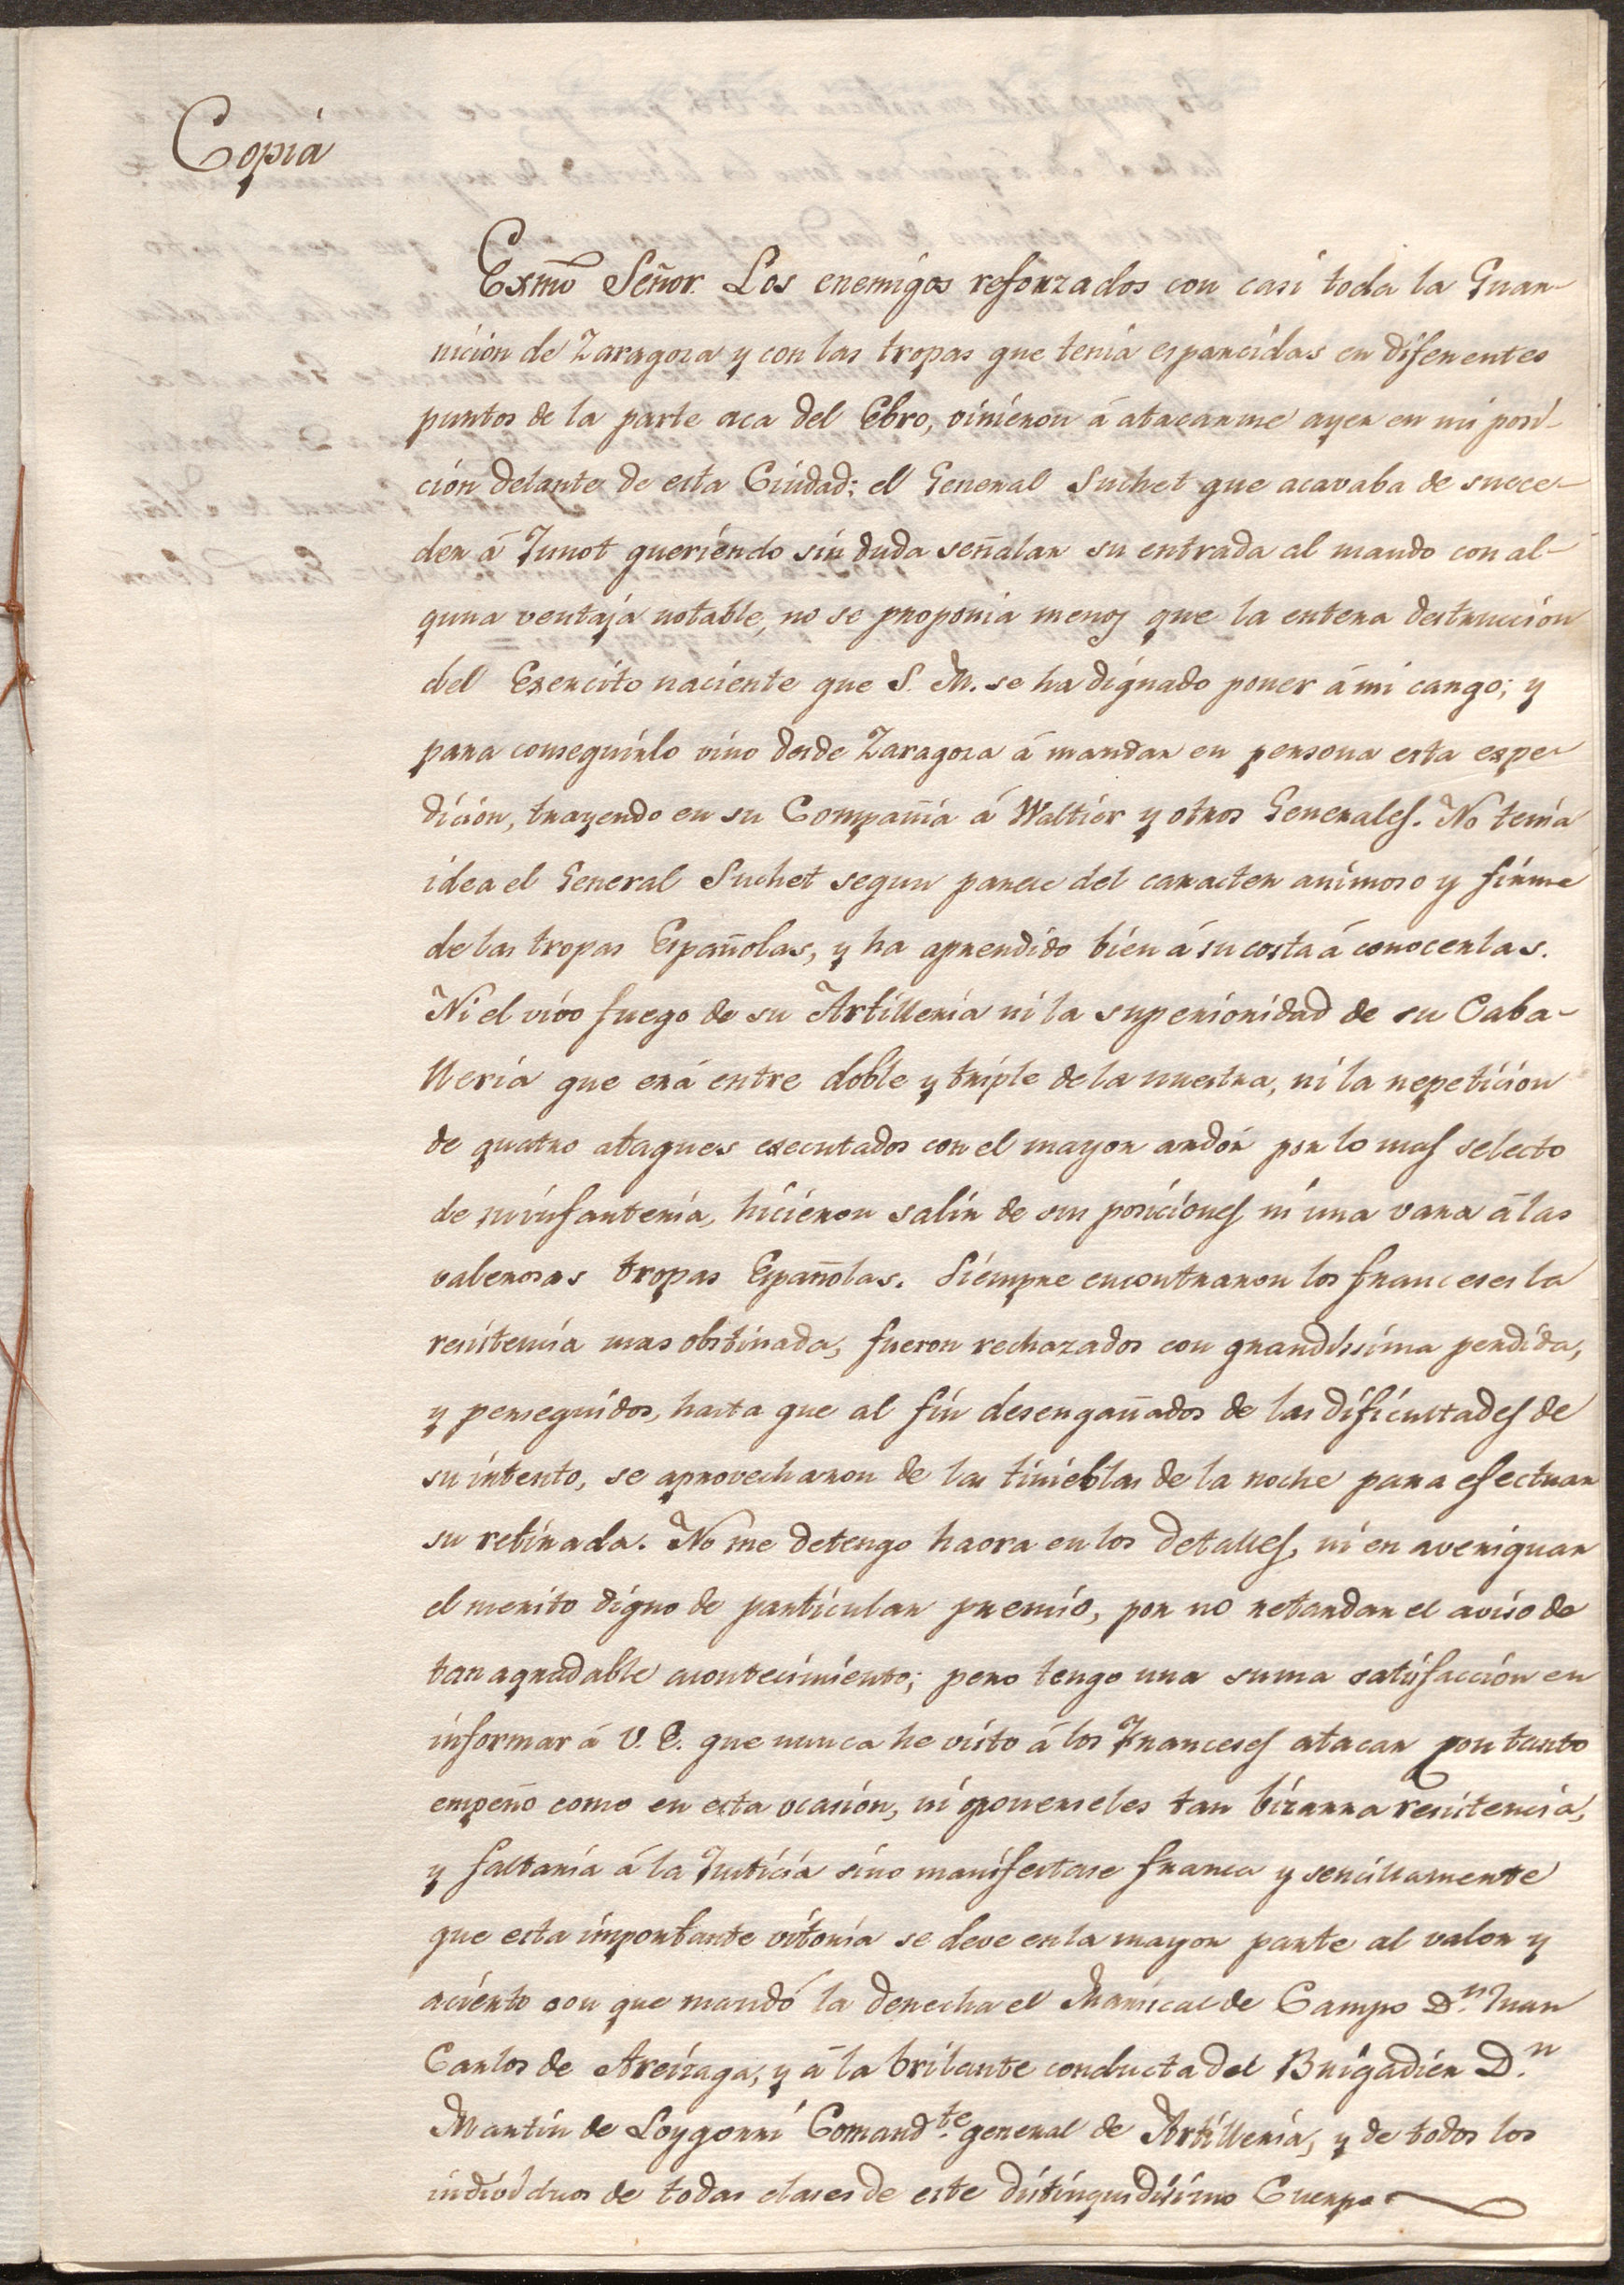 Copia
Exmõ Señor. Los enemigos reforzados con casi toda la Guar-
nicion de Zaragoza y con las tropas que tenia esparcidas en diferentes
puntos de la parte aca del Ebro, vinieron á atacarme ayer en mi posi-
cion delante de esta Ciudad; el General Suchet que acavaba de succe-
der á Junot queriendo sin duda señalar su entrada al mando con al-
guna ventaja notable, no se proponia menos que la entera destruccion
del Exercito naciente que S. M. se ha dignado poner á mi cargo; y
para conseguirlo vino desde Zaragoza á mandar en persona esta espe-
dicion, trayendo en su Compañia á Waltier y otros Generales. No tenia
idea el General Suchet segun parece del caracter animoso y firme
de las tropas Españolas, y ha aprendido bien á su costa á conocerlas.
Ni el vivo fuego de su Artilleria ni la superioridad de su Caba-
lleria que erá entre doble y triple de la nuestra, ni la repeticion
de quatro ataques executados con el mayor ardór por lo mas selecto
de su infanteria, hicieron salir de sus posiciones ni una vara á las
valerosas tropas Españolas. Siempre encontraron los franceses la
resistencia mas obstinada, fueron rechazados con grandissima perdida,
y perseguidos, hasta que al fin desengañados de las dificultades de
su intento, se aprovecharon de las tinieblas de la noche para efectuar
su retirada. No me detengo haora en los detalles, ni en averiguar
el merito digno de particular premio, por no retardar el aviso de
tan agradable acontecimiento; pero tengo una suma satisfaccion en
informar á V. E. que nunca he visto á los Franceses atacar con tanto
empeño como en esta ocasion, ni oponerseles tan bizarra resistencia,
y faltaria á la Justicia sino manifestase franca y sencillamente
que esta importante vitoria se deve en la mayor parte al valor y
acierto con que mandó la derecha el Mariscal de Campo D.ⁿ Juan
Carlos de Areizaga, y á la brilante conducta del Brigadier D.ⁿ
Martin de Loygorri Comand.te general de Artilleria, y de todos los
individuos de todas clases de este distinguidisimo Cuerpo.